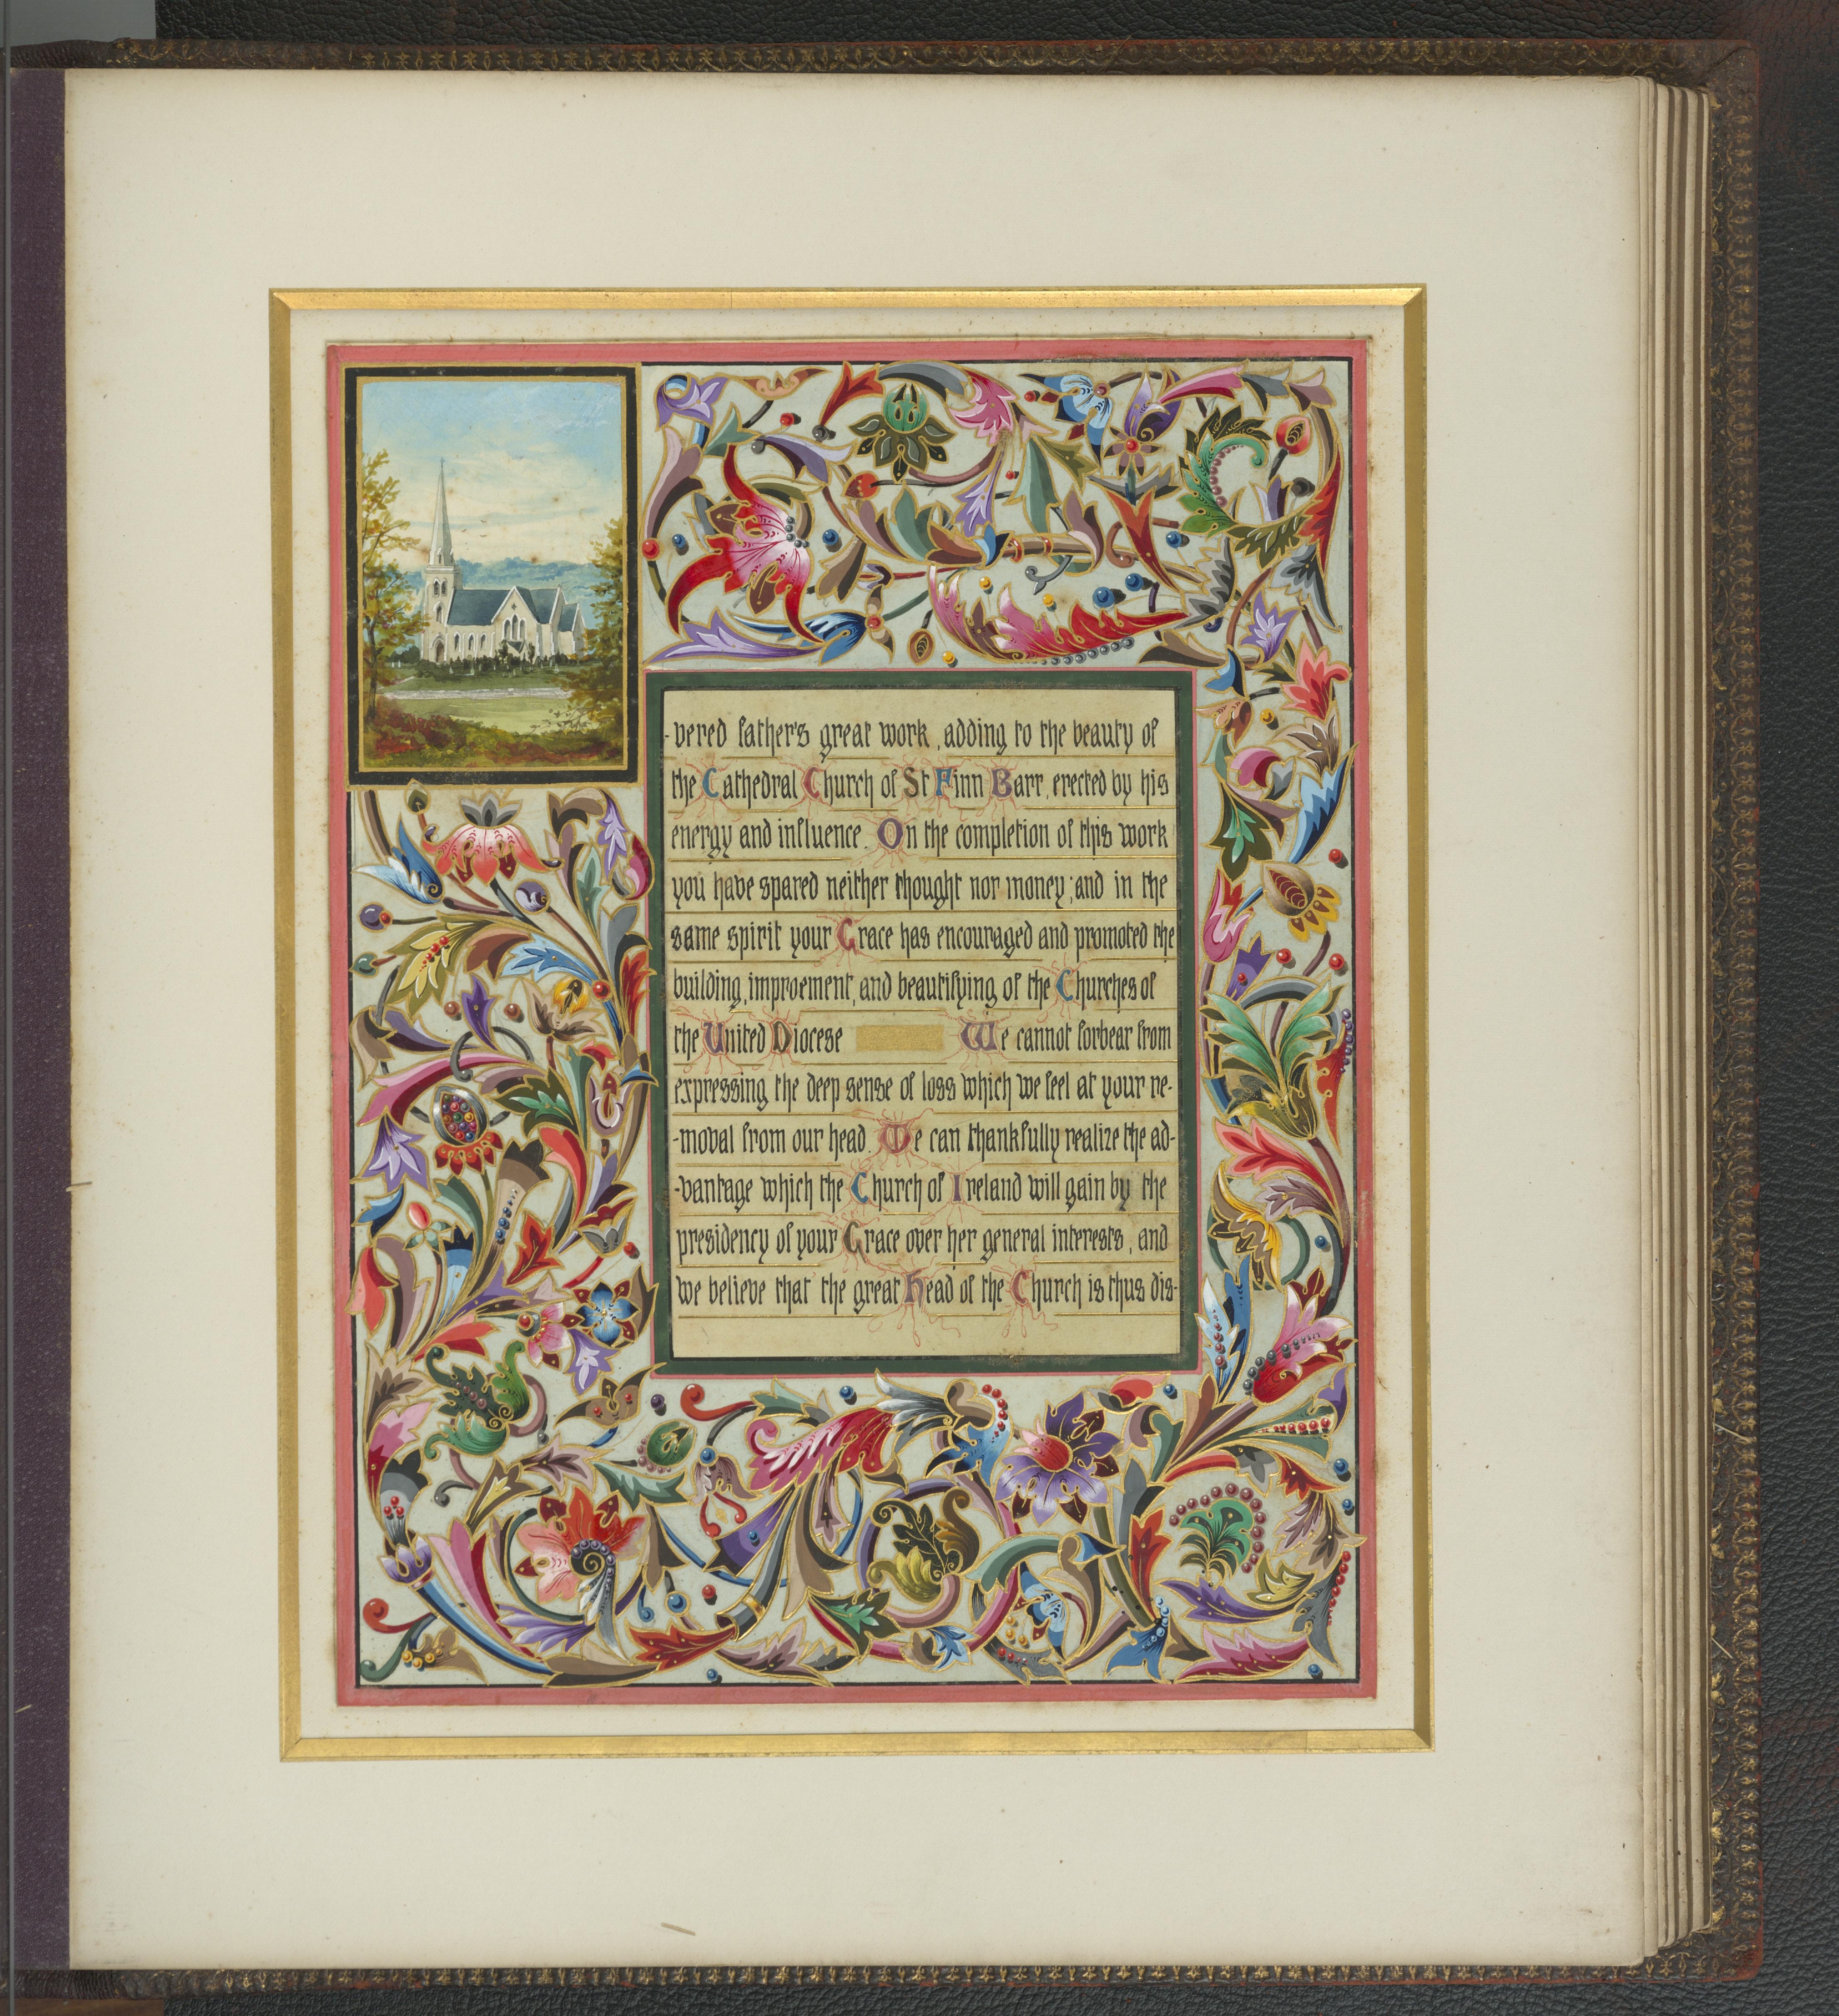 -vered father's great work, adding to the beauty of
the Cathedral Church of St Finn Barr, erected by his
energy and influence. On the completion of this work
you have spared neither thought nor money; and in the
same spirit your Grace has encouraged and promoted the
building, improement, and beautifying of the Churches of
the United Diocese We cannot forbear from
expressing the deep sense of loss which we feel at your re-
-moval from our head. We can thankfully realize the ad-
-vantage which the Church of Ireland will gain by the
presidency of your Grace over her general interests, and
we believe that the great Head of the Church is thus dis-